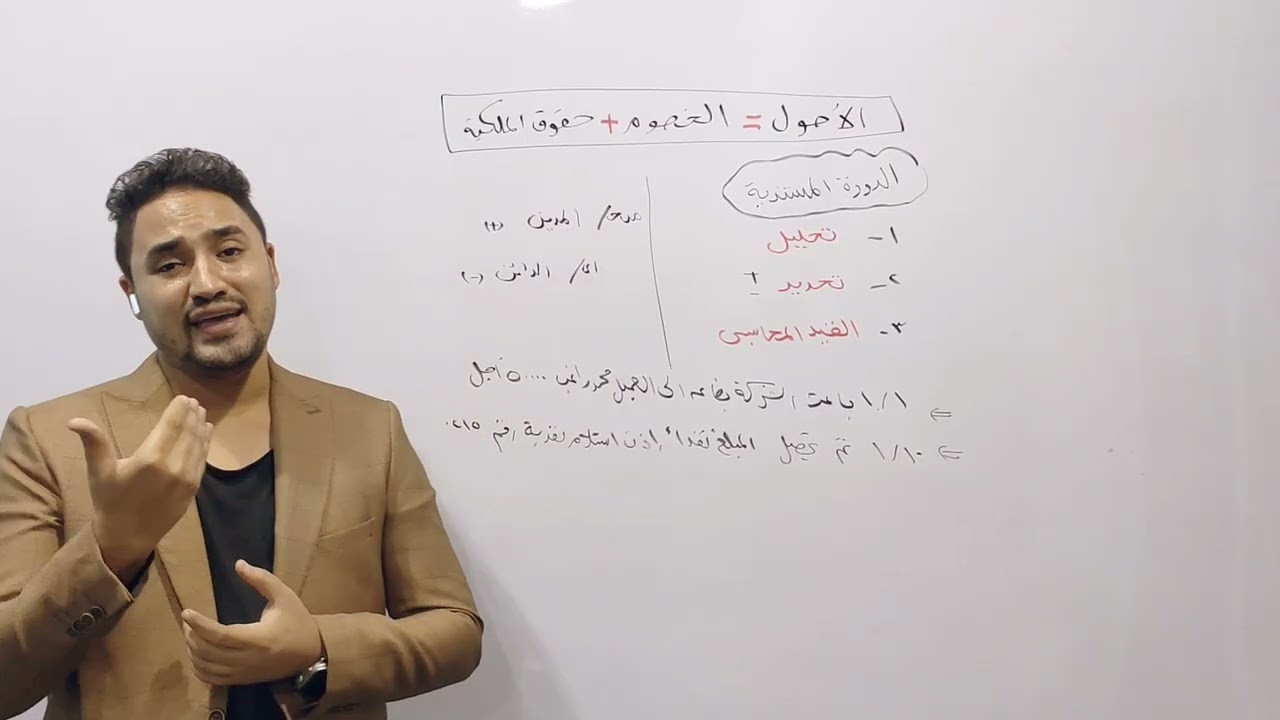 الأصول = الخصوم + حقوق الملكية
الدورة المستندية
١- تحليل
٢- تحديد ±
٣- القيد المحاسبي
/ المدين (+)
/ الدائن (-)
⇐ ١/١ باعت الشركة بضاعه الى العميل محمد ٥٠٠٠٠ آجل
⇐ ١/١٠ تم تحصيل المبلغ نقداً إذن استلام نقدية رقم